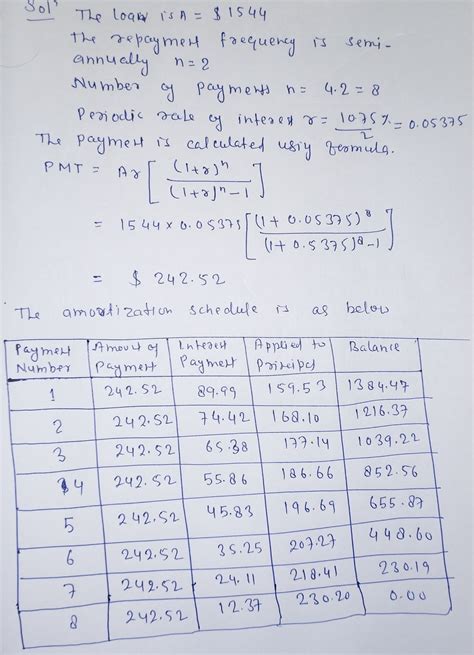 Solⁿ The loan is A = $ 1544
the repayment frequency is semi-
annually n=2
Number of payments n= 4.2 = 8
Periodic rate of interest r = 10.75 % / 2 = 0.05375
The payment is calculated using formula.
PMT = Ar [ (1+r)ⁿ / (1+r)ⁿ-1 ]
= 1544 x 0.05375 [ (1+0.05375)⁸ / (1+0.5375)⁸-1 ]
= $ 242.52
The amortization schedule is as below
Payment Number | Amount of Payment | Interest Payment | Applied to Principal | Balance
1 | 242.52 | 89.99 | 159.53 | 1384.47
2 | 242.52 | 74.42 | 168.10 | 1216.37
3 | 242.52 | 65.38 | 177.14 | 1039.22
4 | 242.52 | 55.86 | 186.66 | 852.56
5 | 242.52 | 45.83 | 196.69 | 655.87
6 | 242.52 | 35.25 | 207.27 | 448.60
7 | 242.52 | 24.11 | 218.41 | 230.19
8 | 242.52 | 12.37 | 230.20 | 0.00